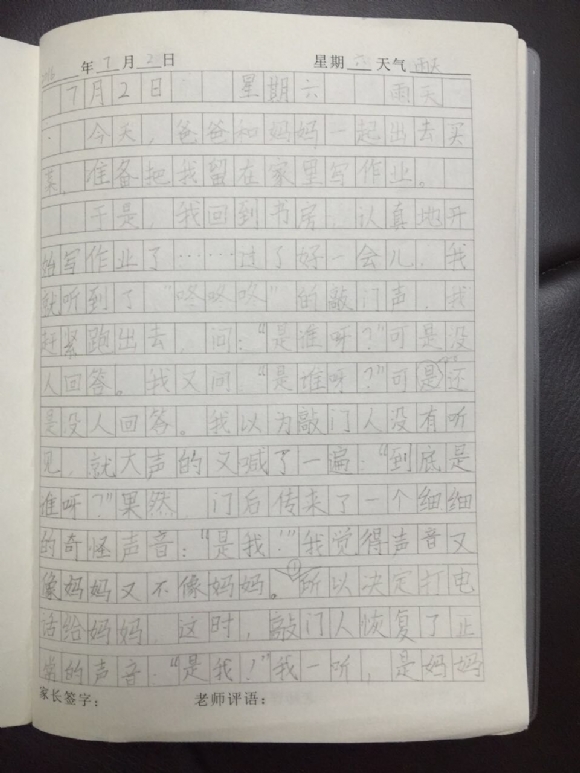 年7月2日 星期六天气雨天
7月2日 星期六 雨天
今天，爸爸和妈妈一起出去买
菜，准备把我留在家里写作业。
于是，我回到书房，认真地开
始写作业了……过了好一会儿，我
就听到了“咚咚咚”的敲门声，我
赶紧跑出去，问：“是谁呀？”可是没
人回答。我又问：“是谁呀？”可是还
是没人回答。我以为敲门人没有听
见，就大声的又喊了一遍：“到底是
谁呀？”果然，门后传来了一个细细
的奇怪声音：“是我！”我觉得声音又
像妈妈又不像妈妈。所以决定打电
话给妈妈，这时，敲门人恢复了正
常的声音：“是我！”我一听，是妈妈
家长签字： 老师评语：